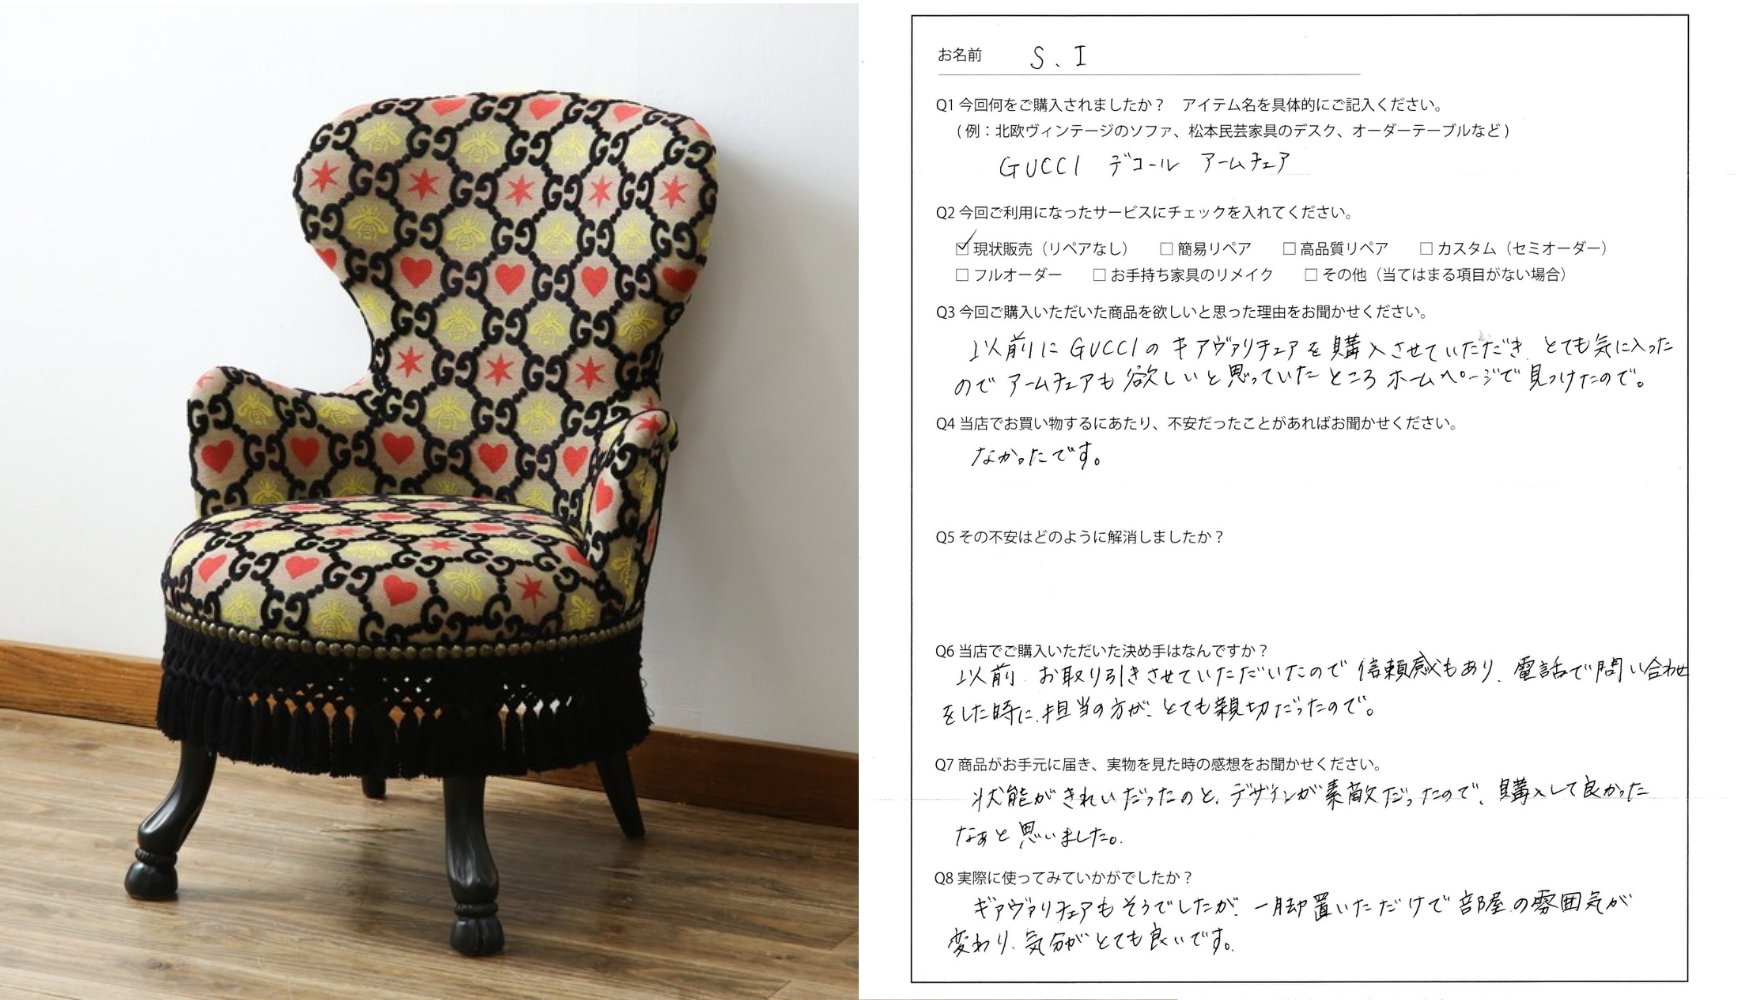 お名前 S、I
Q1 今回何をご購入されましたか？ アイテム名を具体的にご記入ください。
(例：北欧ヴィンテージのソファ、松本民芸家具のデスク、オーダーテーブルなど)
GUCCI デコール アームチェア
Q2 今回ご利用になったサービスにチェックを入れてください。
☑現状販売（リペアなし） □簡易リペア □高品質リペア □カスタム（セミオーダー）
□フルオーダー □お手持ち家具のリメイク □その他（当てはまる項目がない場合）
Q3 今回ご購入いただいた商品を欲しいと思った理由をお聞かせください。
以前に GUCCIの キアヴァリチェアを購入させていただき、とても気に入った
ので アームチェアも欲しいと思っていた ところ ホームページで見つけたので。
Q4 当店でお買い物するにあたり、不安だったことがあればお聞かせください。
なかったです。
Q5 その不安はどのように解消しましたか？
Q6 当店でご購入いただいた決め手はなんですか？
以前 お取り引きさせていただいたので 信頼感もあり、電話で問い合わせ
をした時に、担当の方が、とても親切だったので。
Q7 商品がお手元に届き、実物を見た時の感想をお聞かせください。
状態がきれいだったのと、デザインが素敵だったので、購入して良かった
なぁと思いました。
Q8 実際に使ってみていかがでしたか？
ギアヴァリチェアもそうでしたが、一脚置いただけで部屋の雰囲気が
変わり、気分がとても良いです。